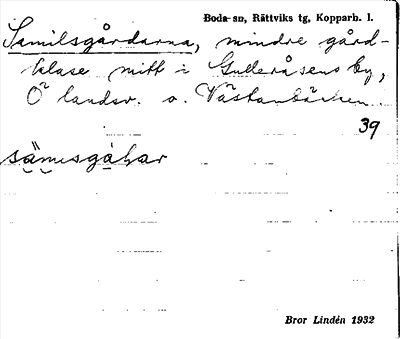 Boda sn, Rättviks tg, Kopparb. l.
Samilsgårdarna, mindre gård-
klase mitt i Gulleråsens by,
Ö landsv. o. Västanbäcken
39
sämsgahar
Bror Lindén 1932